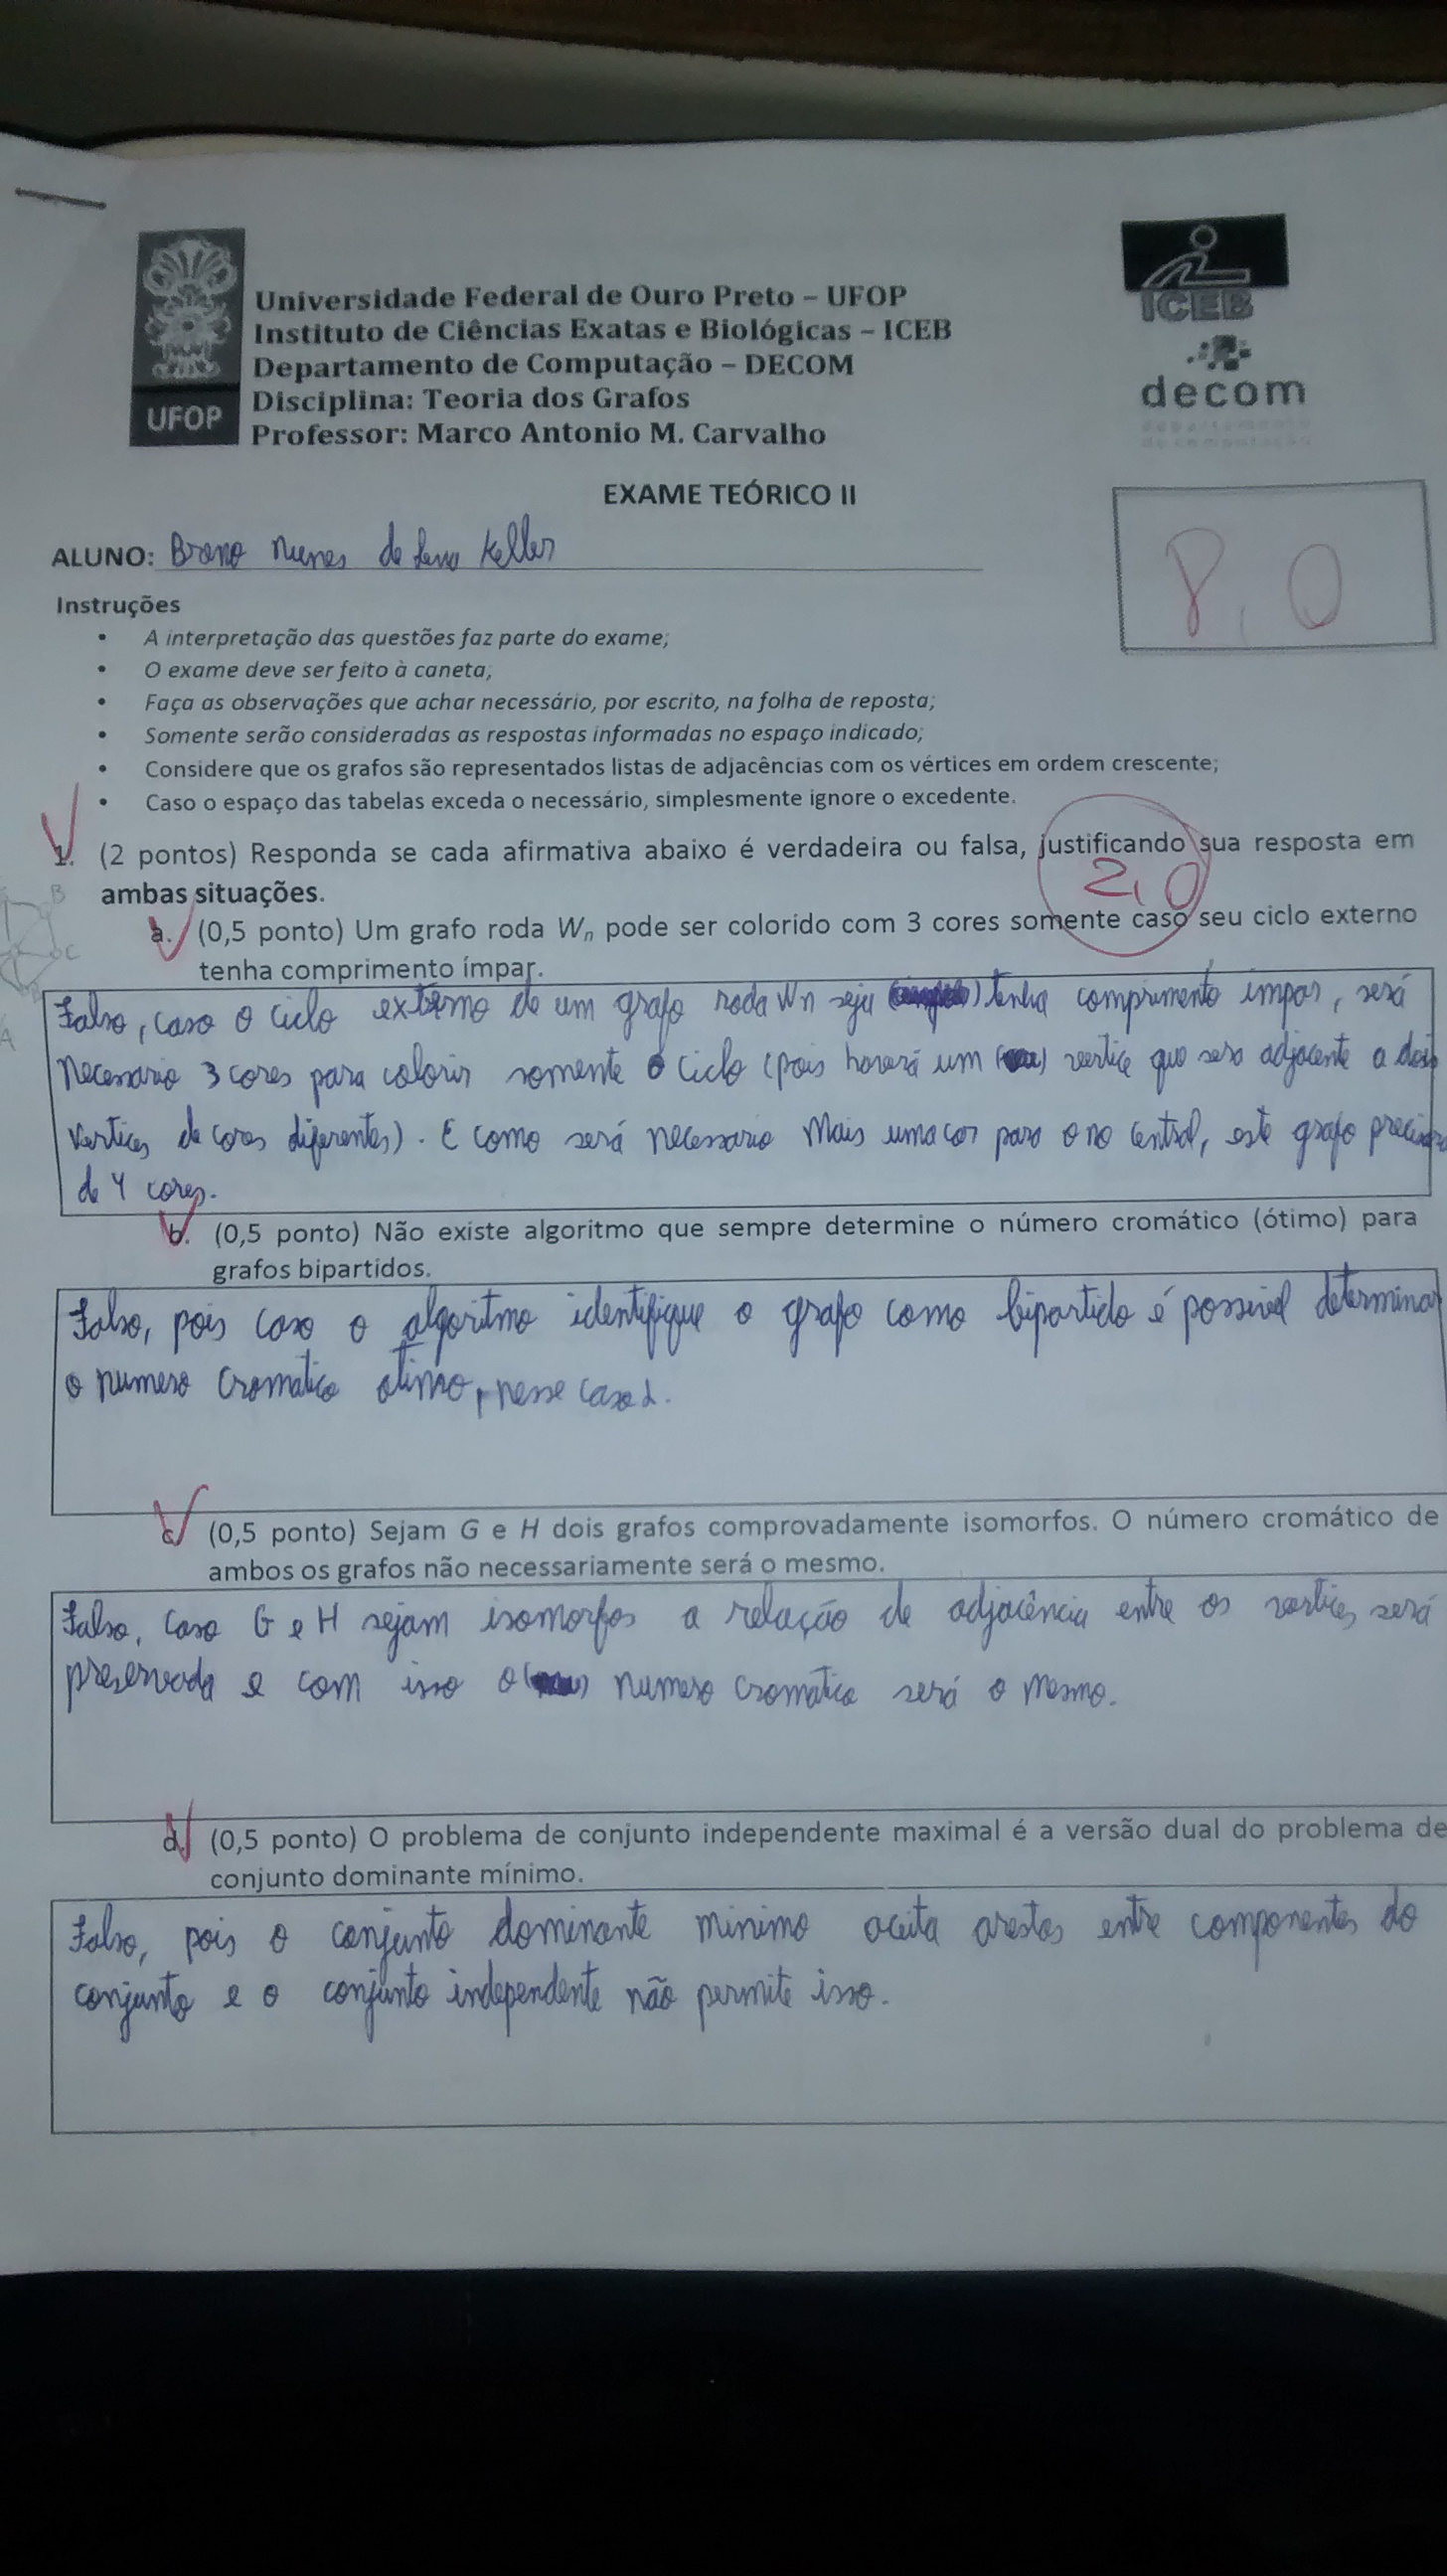 Universidade Federal de Ouro Preto – UFOP
Instituto de Ciências Exatas e Biológicas – ICEB
Departamento de Computação – DECOM
Disciplina: Teoria dos Grafos
Professor: Marco Antonio M. Carvalho
UFOP
ICEB
decom
departamento
de computação
EXAME TEÓRICO II
8,0
ALUNO: Breno Nunes de Sena Keller
Instruções
• A interpretação das questões faz parte do exame;
• O exame deve ser feito à caneta;
• Faça as observações que achar necessário, por escrito, na folha de reposta;
• Somente serão consideradas as respostas informadas no espaço indicado;
• Considere que os grafos são representados listas de adjacências com os vértices em ordem crescente;
• Caso o espaço das tabelas exceda o necessário, simplesmente ignore o excedente.
1. (2 pontos) Responda se cada afirmativa abaixo é verdadeira ou falsa, justificando sua resposta em
ambas situações.
2,0
B
C
A
a. (0,5 ponto) Um grafo roda Wn pode ser colorido com 3 cores somente caso seu ciclo externo
tenha comprimento ímpar.
Falso, caso o ciclo externo de um grafo roda Wn seja tenha comprimento impar, será
necessario 3 cores para colorir somente o ciclo (pois haverá um vertice que sera adjacente a dois
vertices de cores diferentes). E como será necessario mais uma cor para o no central, este grafo precisará
de 4 cores.
b. (0,5 ponto) Não existe algoritmo que sempre determine o número cromático (ótimo) para
grafos bipartidos.
Falso, pois caso o algoritmo identifique o grafo como bipartido é possivel determinar
o numero cromatico otimo, nesse caso 2.
c. (0,5 ponto) Sejam G e H dois grafos comprovadamente isomorfos. O número cromático de
ambos os grafos não necessariamente será o mesmo.
Falso, caso G e H sejam isomorfos a relação de adjacência entre os vertices será
preservada e com isso o numero cromatico será o mesmo.
d. (0,5 ponto) O problema de conjunto independente maximal é a versão dual do problema de
conjunto dominante mínimo.
Falso, pois o conjunto dominante minimo aceita arestas entre componentes do
conjunto e o conjunto independente não permite isso.